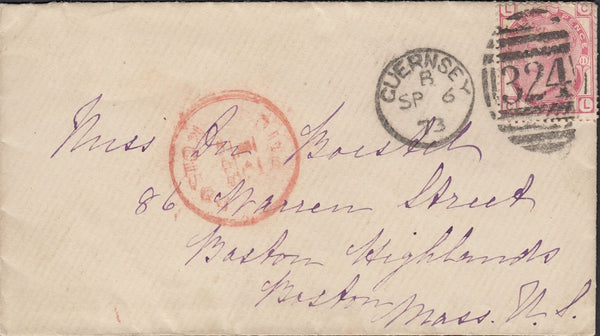 L PENCE C
GUERNSEY
B
SP 6
73
324
C L
Miss Du Boistel
86 Warren Street
Boston Highlands
Boston
Mass. U.S.